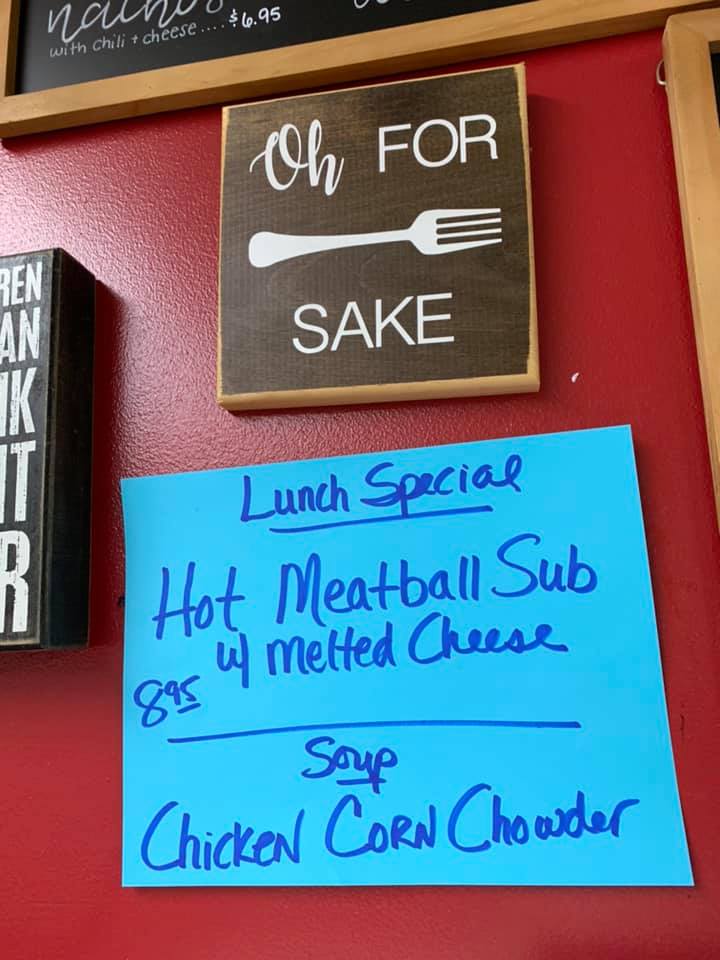 nachos
with chili + cheese .... $6.95
Oh FOR
SAKE
REN
AN
IK
IT
R
Lunch Special
Hot Meatball Sub
w/ melted Cheese
8.95
Soup
Chicken Corn Chowder